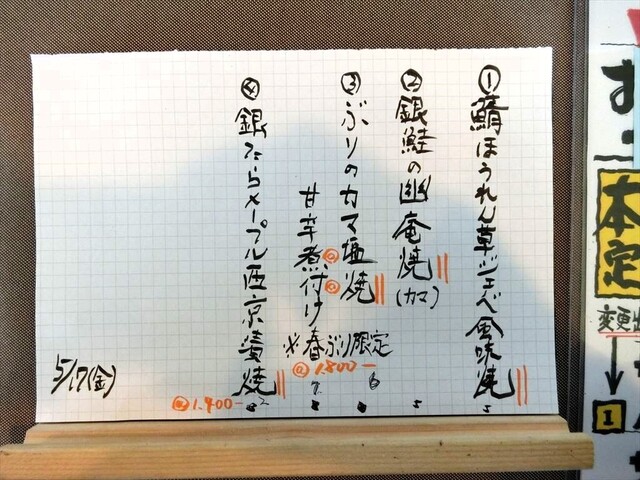 ①鯖ほうれん草ジェノベ風味焼
②銀鮭の幽庵焼(カマ)
③ぶりのカマ塩焼
甘辛煮付け
※春ぶり限定
@1.800-
④銀たらメープル西京漬焼
@1.900-
5/17(金)
本
定
変更
1